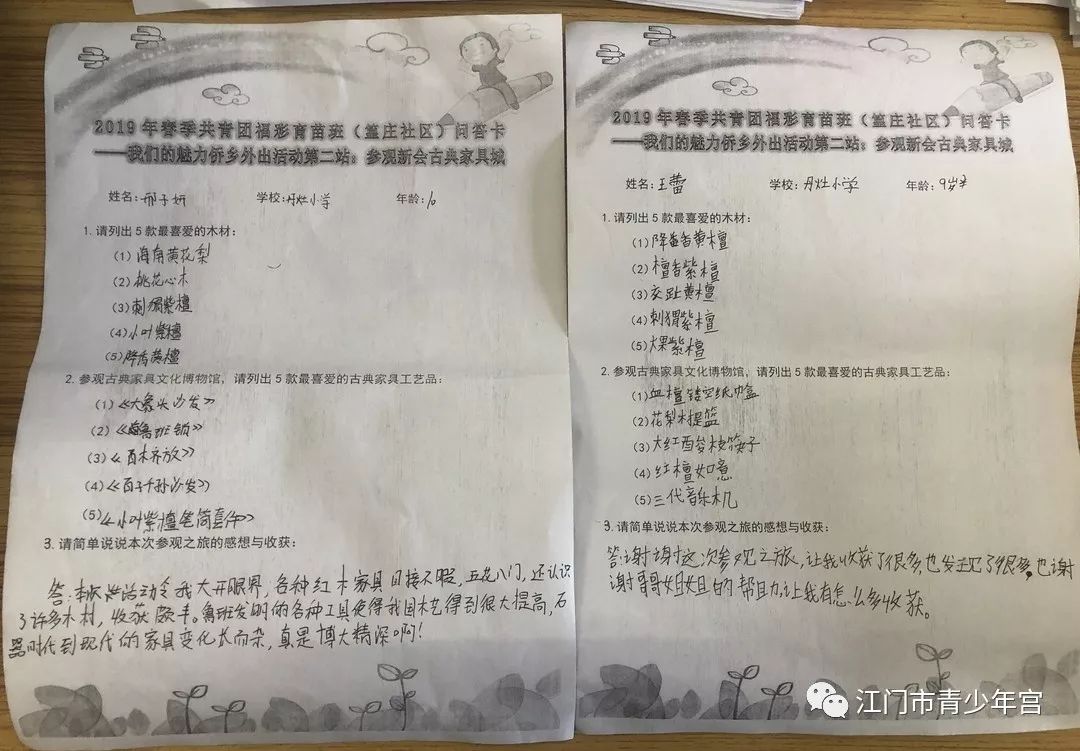 2019年春季共青团福彩育苗班（篁庄社区）问答卡
——我们的魅力侨乡外出活动第二站：参观新会古典家具城
姓名：邢子妍 学校：丹灶小学 年龄：10
1. 请列出5款最喜爱的木材：
(1) 海南黄花梨
(2) 桃花心木
(3) 刺猬紫檀
(4) 小叶紫檀
(5) 降香黄檀
2. 参观古典家具文化博物馆，请列出5款最喜爱的古典家具工艺品：
(1)《大象头沙发》
(2)《鲁班锁》
(3)《百木齐放》
(4)《百子千孙沙发》
(5)《小叶紫檀笔筒套件》
3. 请简单说说本次参观之旅的感想与收获：
答：本次活动令我大开眼界，各种红木家具目接不暇，五花八门，还认识
了许多木材，收获颇丰。鲁班发明的各种工具使得我国木艺得到很大提高，石
器时代到现代的家具变化长而杂，真是博大精深啊！
2019年春季共青团福彩育苗班（篁庄社区）问答卡
——我们的魅力侨乡外出活动第二站：参观新会古典家具城
姓名：王蕾 学校：丹灶小学 年龄：9岁半
1. 请列出5款最喜爱的木材：
(1) 降香黄檀
(2) 檀香紫檀
(3) 交趾黄檀
(4) 刺猬紫檀
(5) 大果紫檀
2. 参观古典家具文化博物馆，请列出5款最喜爱的古典家具工艺品：
(1) 血檀镂空纸巾盒
(2) 花梨木提篮
(3) 大红酸枝筷子
(4) 红檀如意
(5) 三代音乐机
3. 请简单说说本次参观之旅的感想与收获：
答：谢谢这次参观之旅，让我收获了很多，也发现了很多，也谢
谢哥哥姐姐的帮助，让我有怎么多收获。
江门市青少年宫